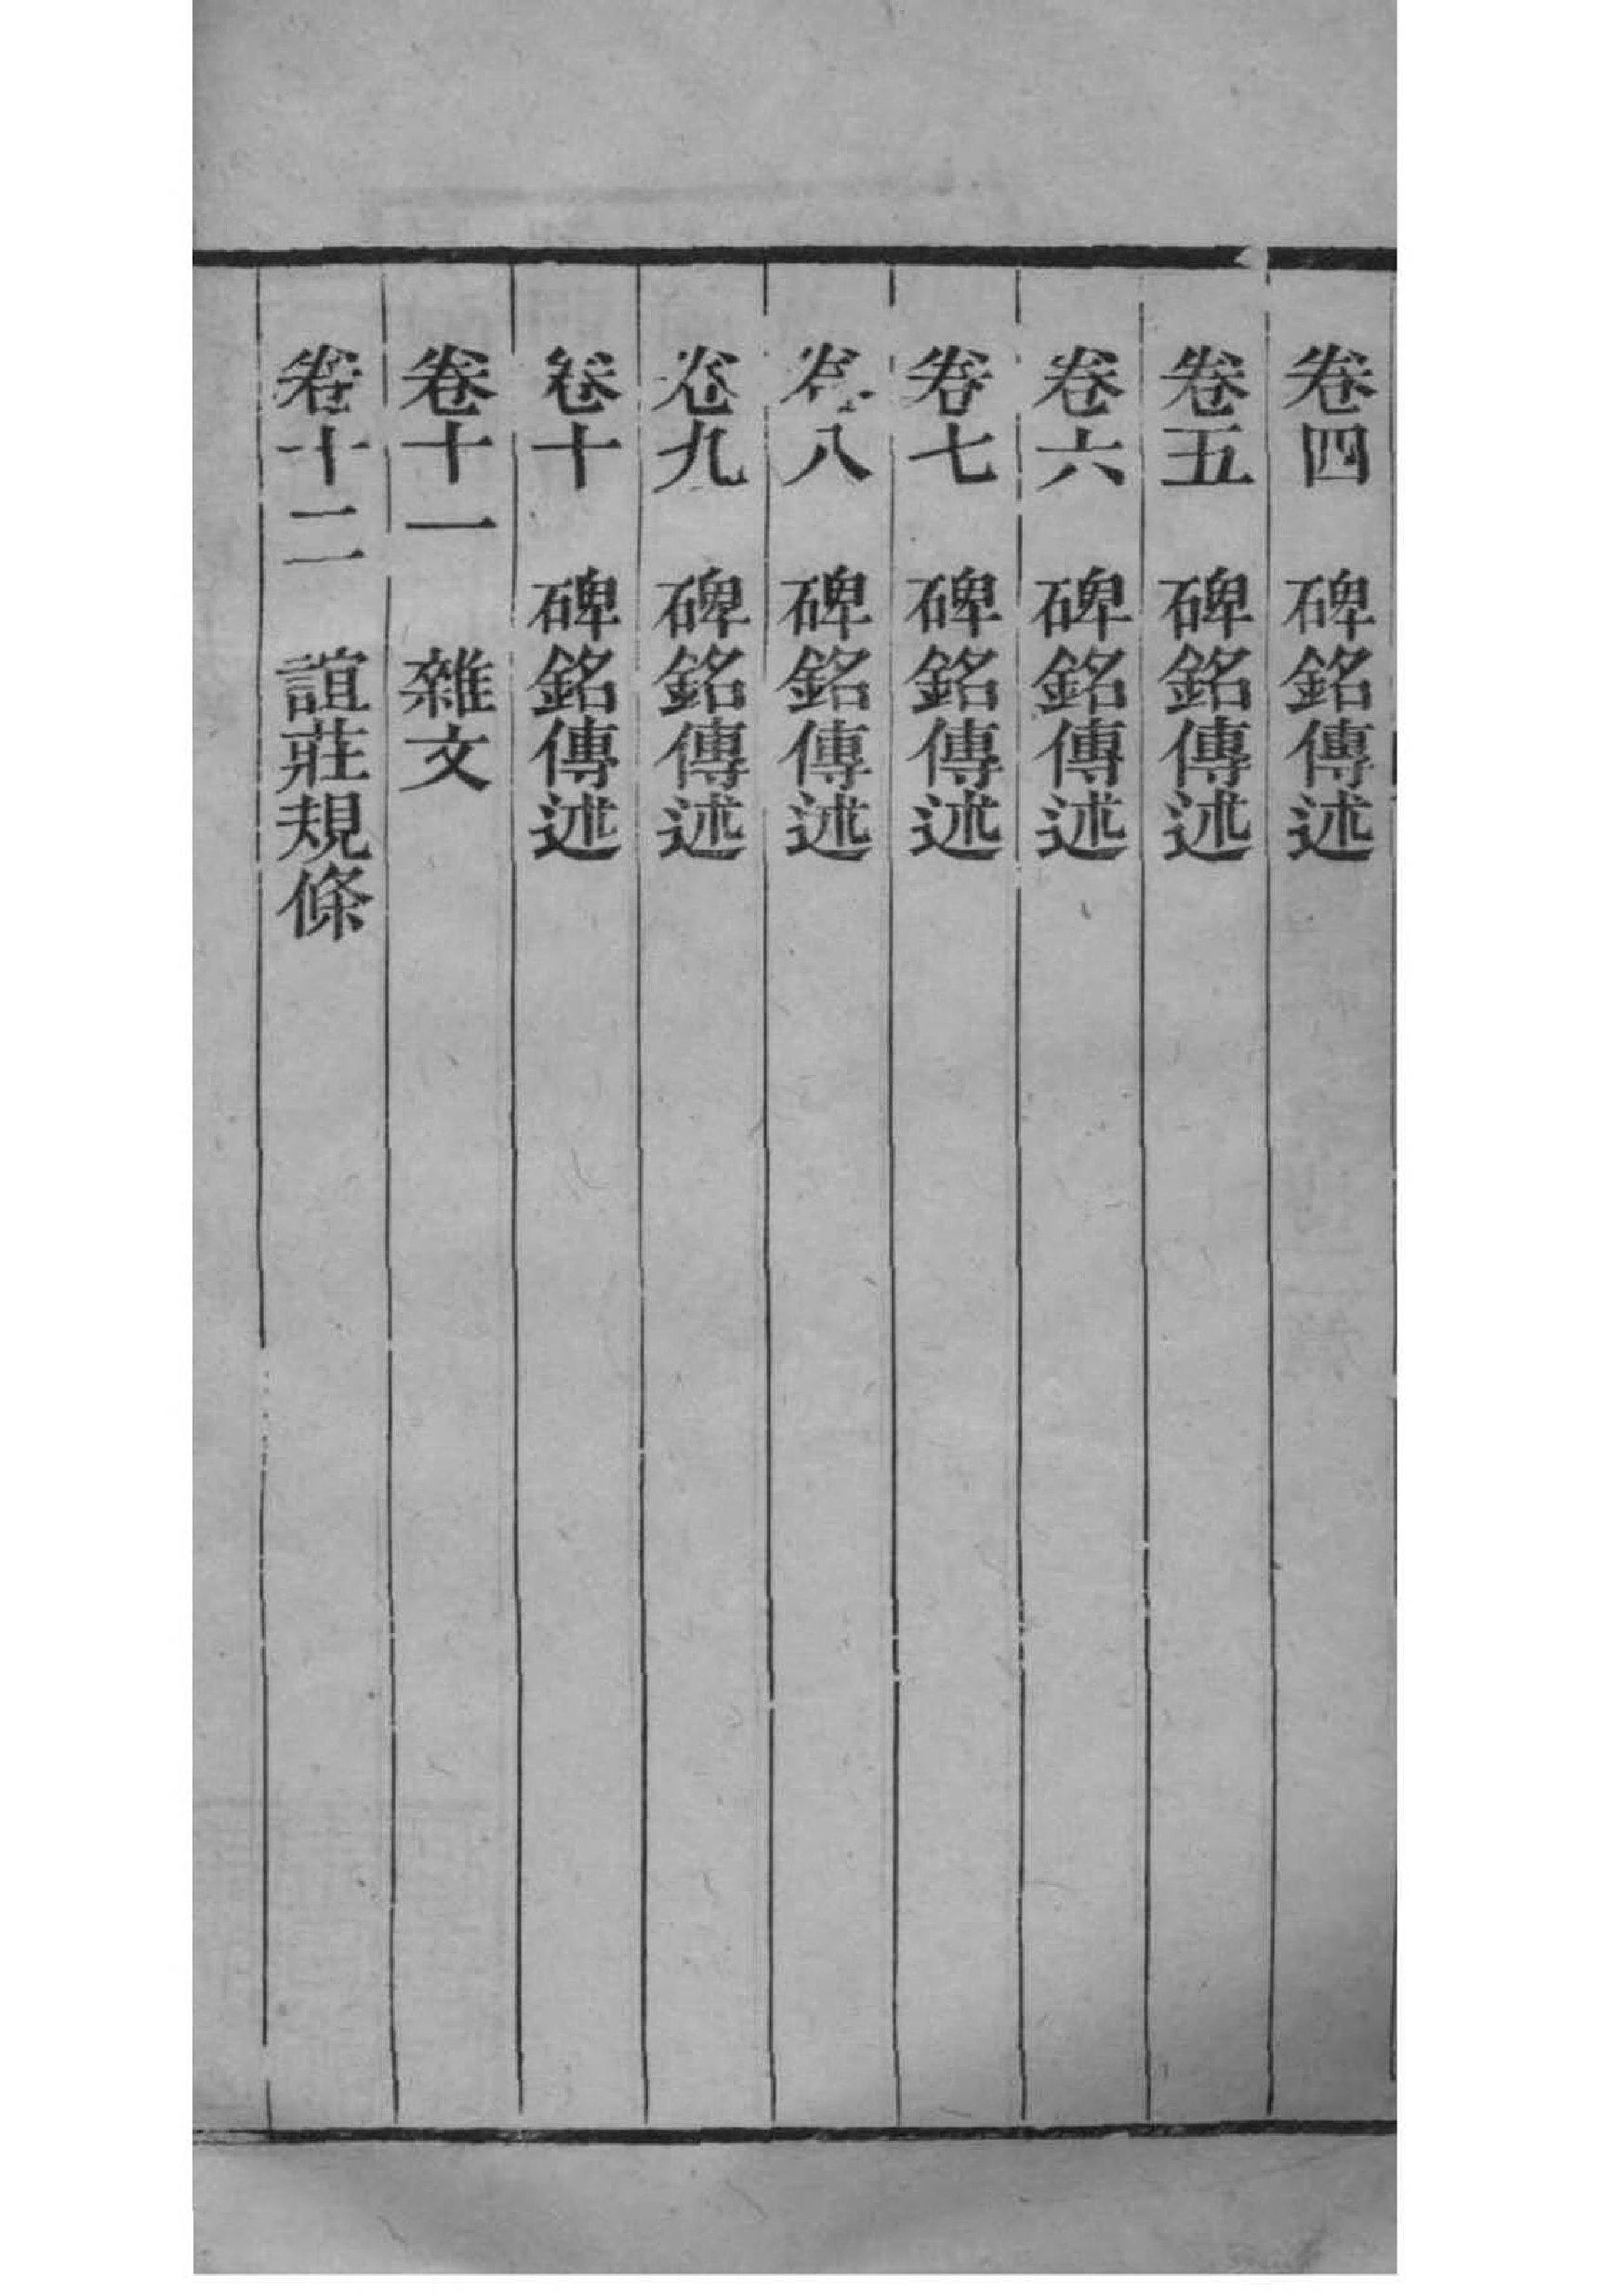 卷四　碑銘傳述
卷五　碑銘傳述
卷六　碑銘傳述
卷七　碑銘傳述
卷八　碑銘傳述
卷九　碑銘傳述
卷十　碑銘傳述
卷十一　雜文
卷十二　誼莊規條